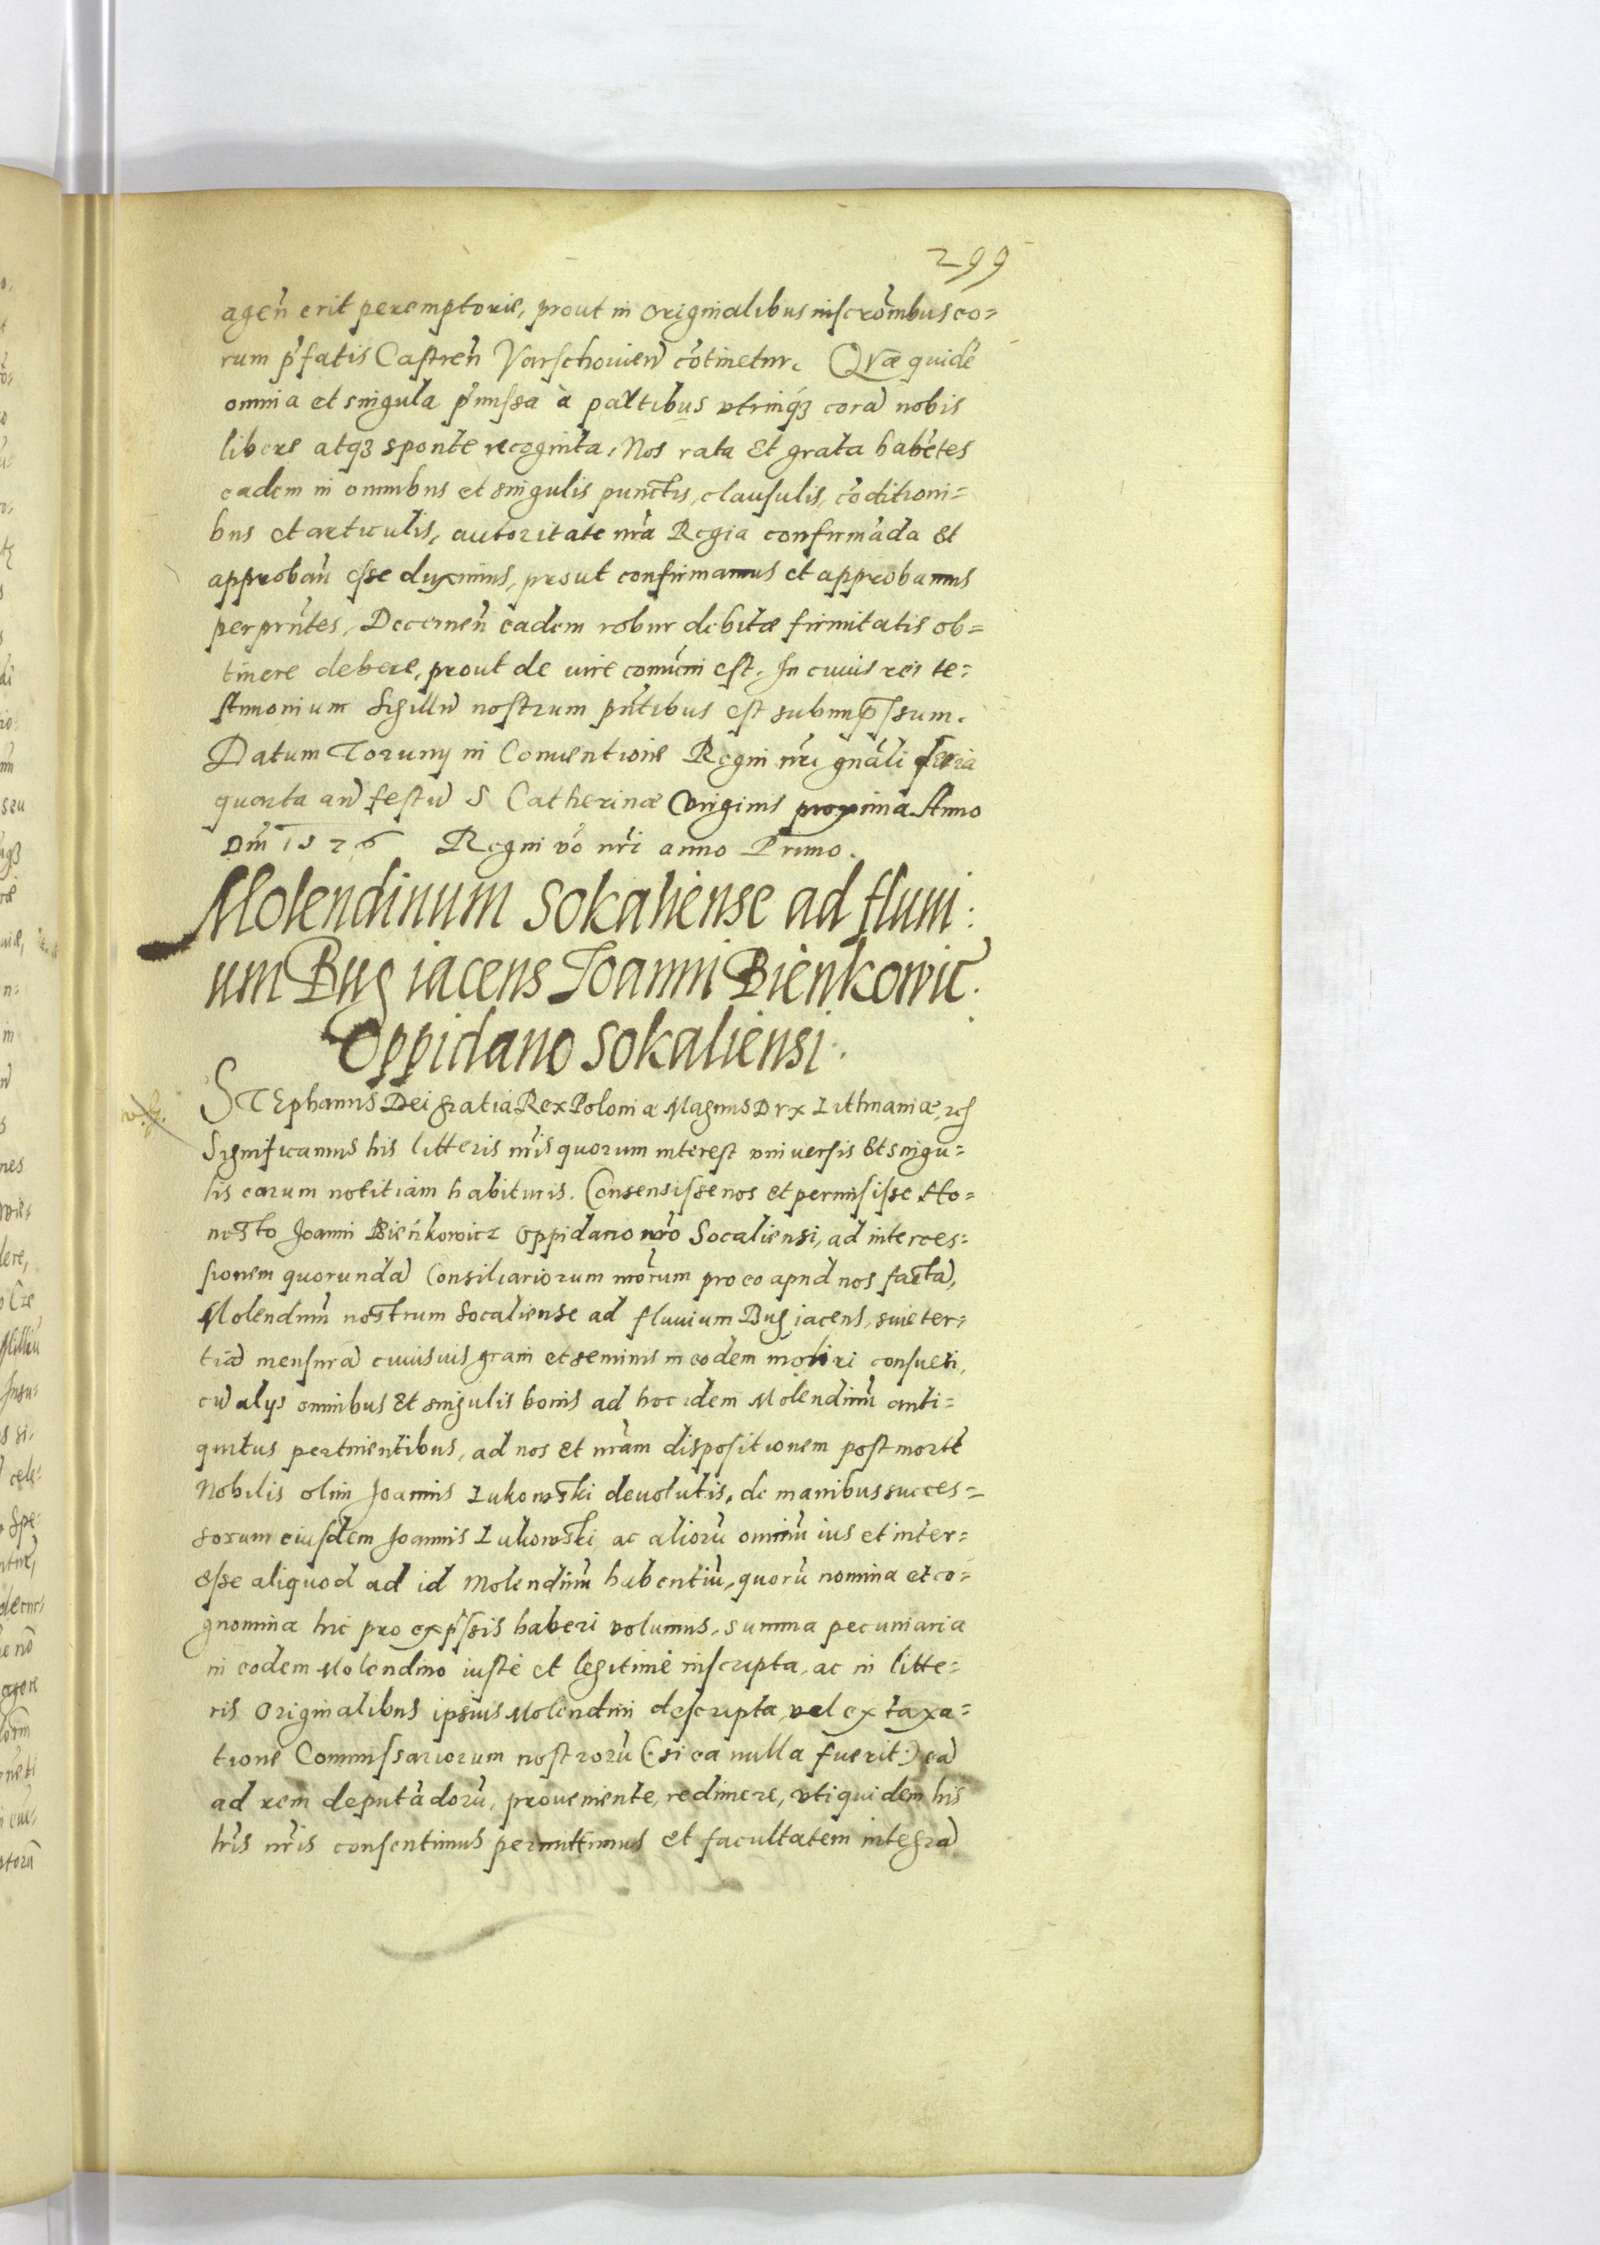 299
ageñ erit peremptorie, prout in originalibus inscrōnibus eo=
rum p̃fatis Castreñ Varschouieñ cōtinetur. Qvæ quidē
omnia et singula p̃missa à partibus vtrinq́ꝫ corā nobis
libere atqꝫ sponte recognita, Nos rata Et grata habẽtes
eadem in omnibus et singulis punctis, clausulis, cōditioni=
bus et articulis, autoritate nr̃a Regia confirmāda Et
approbañ esse duximus, prout confirmamus et approbamus
per pr̃ntes, Decerneñ eadem robur debitæ firmitatis ob=
tinere debere, prout de iure comuni est. In cuius rei te=
stimonium Sigillū nostrum pñtibus est subimp̃ssum.
Datum Toruny in Conuentione Regni nr̃i gñali feria
quarta añ festū S Catherinæ Virginis proxima Anno
Dñi 1576 Regni vō nr̃i anno Primo.
Molendinum Sokaliense ad fluui:
um Bug iacens Ioanni Bienkowic̃.
Oppidano Sokaliensi.
STEphanus Dei gratia Rex Poloniæ Magnus Dvx Lithuaniæ, ꝛc̃
Significamus his litteris nr̃is quorum interest vniuersis Et singu=
lis earum notitiam habituris. Consensisse nos et permisisse Ho=
nesto Joanni Bieńkowicz oppidano nr̃o Socaliensi, ad interces=
sionem quorundā Consiliariorum nr̃orum pro eo apud nos factā,
Molendinũ nostrum Socaliense ad fluuium Bug iacens, siue ter=
tiā mensurā cuiusuis grani et seminis in eodem moliri consueti,
cū alys omnibus Et singulis bonis ad hoc idem Molendinũ anti=
quitus pertinentibus, ad nos et nr̃am dispositionem post mortē
Nobilis olim Joannis Lukowski deuolutis, de manibus succes=
sorum eiusdem Joannis Lukowski ac aliorũ omniũ ius et inter=
esse aliquod ad id Molendinũ habentiũ, quorũ nomina et co=
gnomina hic pro exp̃ssis haberi volumus, summa pecuniaria
in eodem Molendino iustè et legitimè inscripta, ac in litte=
ris Originalibus ipsius Molendini descripta, vel ex taxa=
tione Commissariorum nostrorũ (si ea nulla fuerit) eā
ad rem deputādorũ, proueniente, redimere, vti quidem his
lr̃is nr̃is consentimus permittimus et facultatem integrā